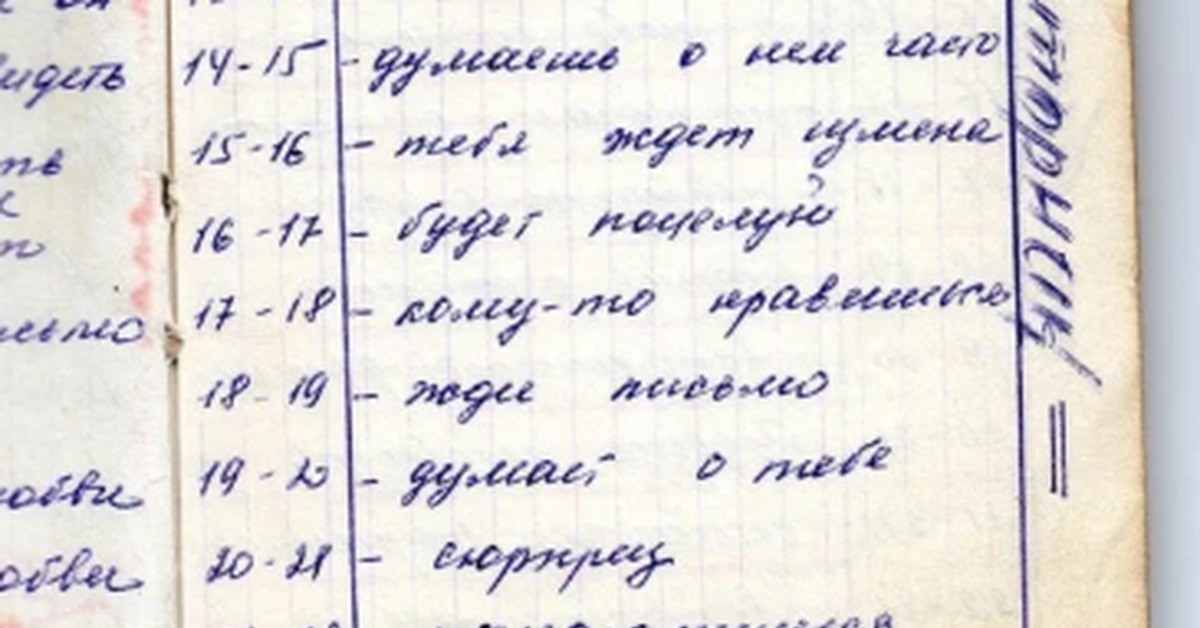 14-15 - думаешь о нем часто
15-16 - тебя ждет измена
16-17 - будет поцелуй
17-18 - кому-то нравишься
18-19 - жди письмо
19-20 - думает о тебе
20-21 - сюрприз
идеть
ть
обви
обви